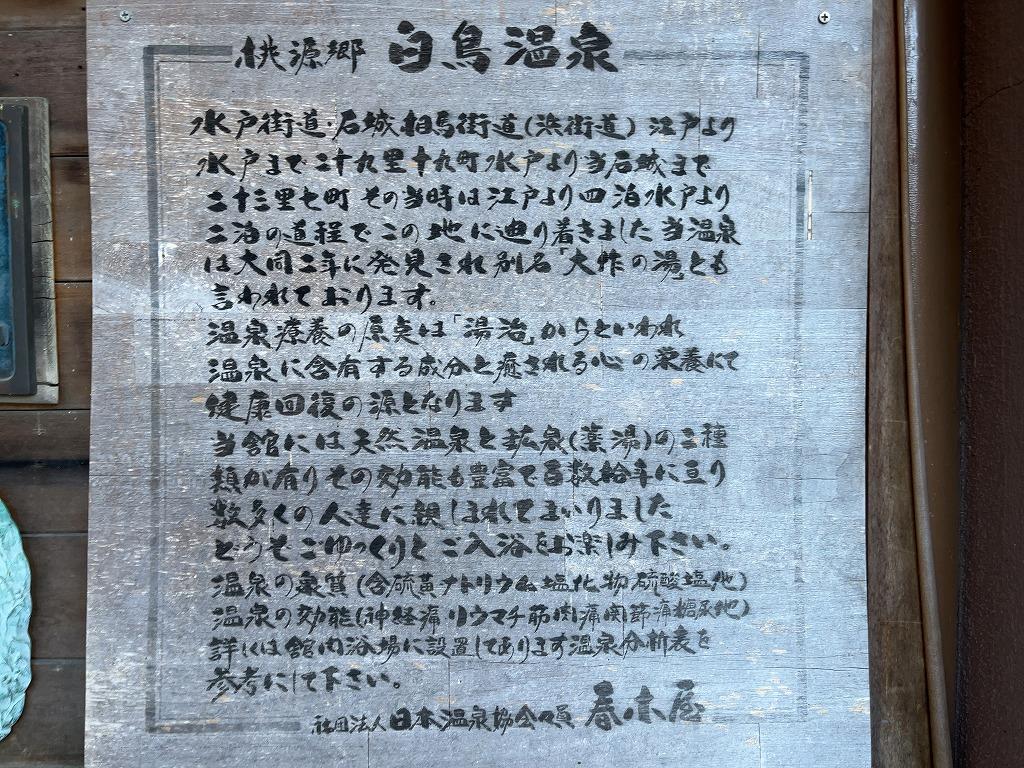 桃源郷 白鳥温泉
水戸街道・石城相馬街道(浜街道) 江戸より
水戸まで二十九里十九町水戸より当石城まで
二十三里七町 その当時は江戸より四泊水戸より
二泊の道程でこの地に辿り着きました当温泉
は大同二年に発見され別名「大作の湯」とも
言われております。
温泉療養の原点は「湯治」からといわれ
温泉に含有する成分と癒される心の栄養にて
健康回復の源となります
当館には天然温泉と鉱泉(薬湯)の二種
類が有りその効能も豊富で百数拾年に亘り
数多くの人達に親しまれてまいりました
どうぞごゆっくりとご入浴をお楽しみ下さい。
温泉の泉質(含硫黄ナトリウム塩化物硫酸塩他)
温泉の効能(神経痛・リウマチ筋肉痛関節痛糖尿他)
詳しくは館内浴場に設置してあります温泉分析表を
参考にして下さい。
社団法人日本温泉協会々員 春木屋